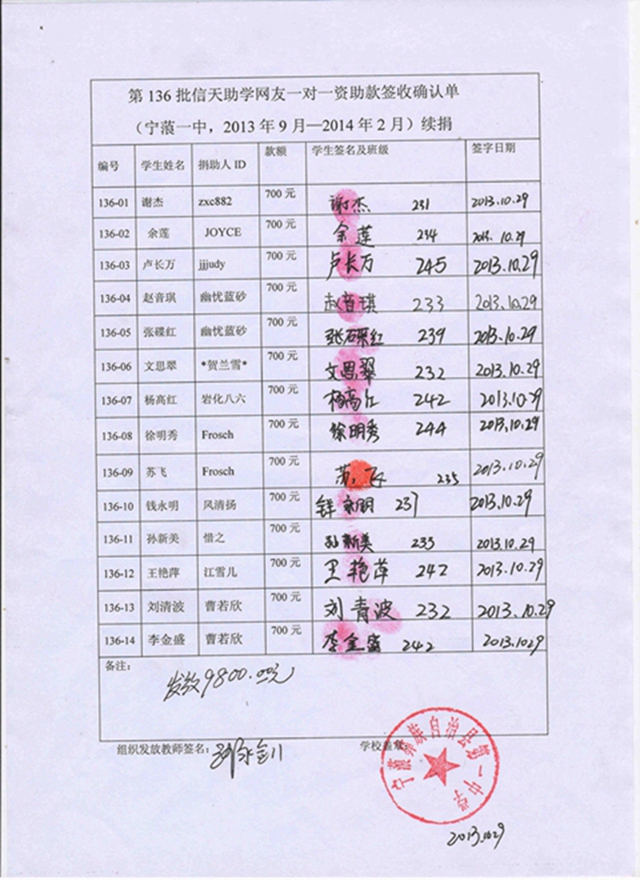 第 136 批信天助学网友一对一资助款签收确认单
（宁蒗一中，2013 年 9 月—2014 年 2 月）续捐
编号 学生姓名 捐助人 ID 款额 学生签名及班级 签字日期
136-01 谢杰 zxc882 700 元 谢杰 231 2013.10.29
136-02 余莲 JOYCE 700 元 余莲 234 2013.10.29
136-03 卢长万 jjjudy 700 元 卢长万 245 2013.10.29
136-04 赵音琪 幽忧蓝砂 700 元 赵音琪 233 2013.10.29
136-05 张碟红 幽忧蓝砂 700 元 张碟红 239 2013.10.29
136-06 文思翠 *贺兰雪* 700 元 文思翠 232 2013.10.29
136-07 杨高红 岩化八六 700 元 杨高红 242 2013.10.29
136-08 徐明秀 Frosch 700 元 徐明秀 244 2013.10.29
136-09 苏飞 Frosch 700 元 苏飞 235 2013.10.29
136-10 钱永明 风清扬 700 元 钱永明 237 2013.10.29
136-11 孙新美 惜之 700 元 孙新美 235 2013.10.29
136-12 王艳萍 江雪儿 700 元 王艳萍 242 2013.10.29
136-13 刘清波 曹若欣 700 元 刘青波 232 2013.10.29
136-14 李金盛 曹若欣 700 元 李金盛 242 2013.1029
备注：
发放9800.00元
组织发放教师签名： 学校盖章
宁蒗彝族自治县第一中学
2013.10.29